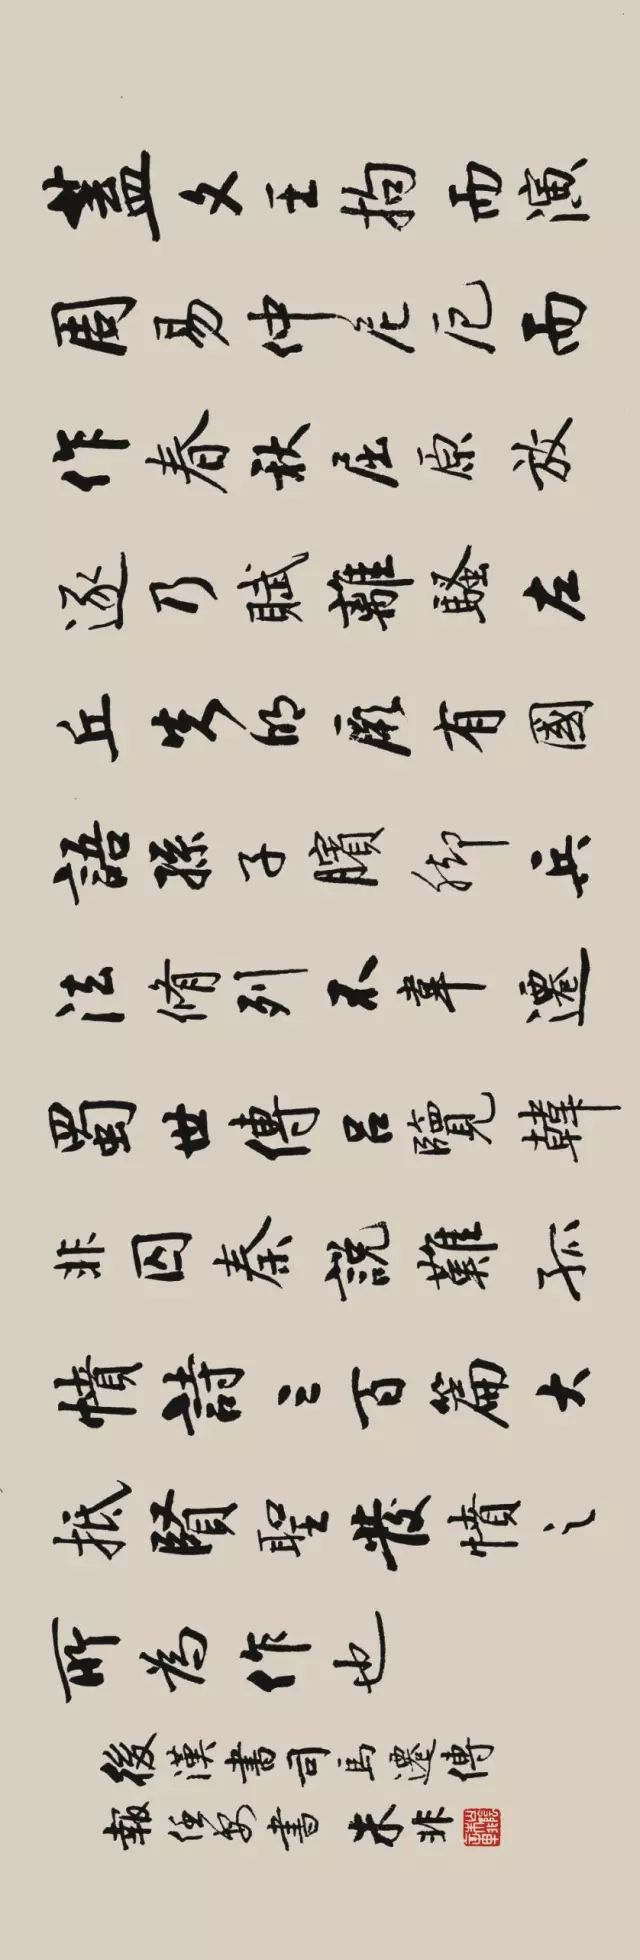 蓋文王拘而演
周易仲尼厄而
作春秋屈原放
逐乃賦離騷左
丘失明厥有國
語孫子臏腳兵
法脩列不韋遷
蜀世傳呂覽韓
非囚秦說難孤
憤詩三百篇大
抵賢聖發憤之
所為作也
後漢書司馬遷傳
報任安書 朱非